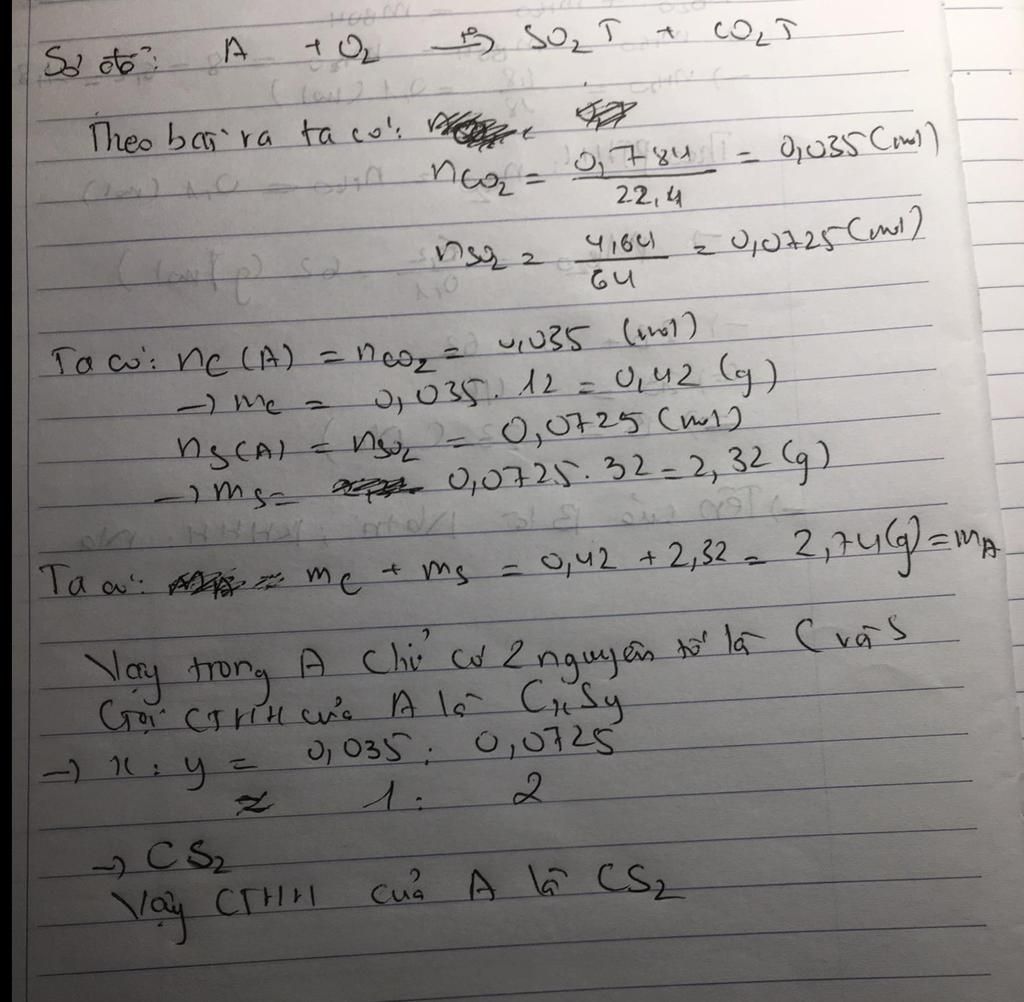 Sơ đồ: A + O2 t°→ SO2↑ + CO2↑
Theo bài ra ta có:
nCO2 = 0,784/22,4 = 0,035 (mol)
nSO2 = 4,64/64 = 0,0725 (mol)
Ta có: nC (A) = nCO2 = 0,035 (mol)
→ mC = 0,035. 12 = 0,42 (g)
nS(A) = nSO2 = 0,0725 (mol)
→ mS = 0,0725. 32 = 2,32 (g)
Ta có: = mC + mS = 0,42 + 2,32 = 2,74(g) = mA
Vậy trong A chỉ có 2 nguyên tố là C và S
Gọi CTHH của A là CxSy
→ x : y = 0,035 : 0,0725
≈ 1 : 2
→ CS2
Vậy CTHH của A là CS2